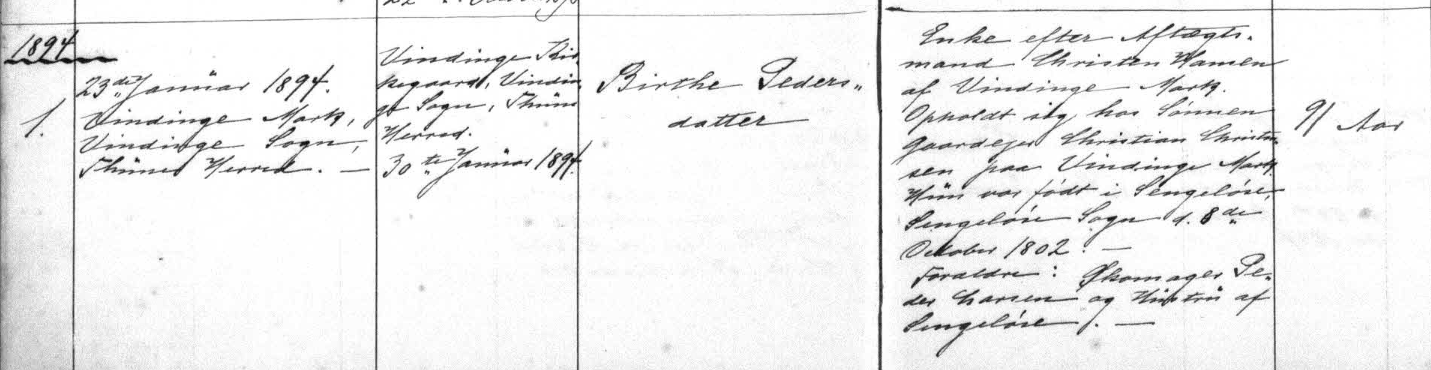 1894
1.
23de Januar 1894.
Vindinge Mark,
Vindinge Sogn,
Thune Herred. —
Vindinge Kir-
kegaard, Vindin-
ge Sogn, Thune
Herred.
30te Januar 1894.
Birthe Peders-
datter
Enke efter Aftægts-
mand Christen Hansen
af Vindinge Mark.
Opholdt sig hos Sønnen
Gaardejer Christian Christen-
sen paa Vindinge Mark
Hun var født i Sengeløse,
Sengeløse Sogn d. 8de
Oktober 1802. —
Forældre: Skomager Pe-
der Larsen og Hustru af
Sengeløse. —
91 Aar